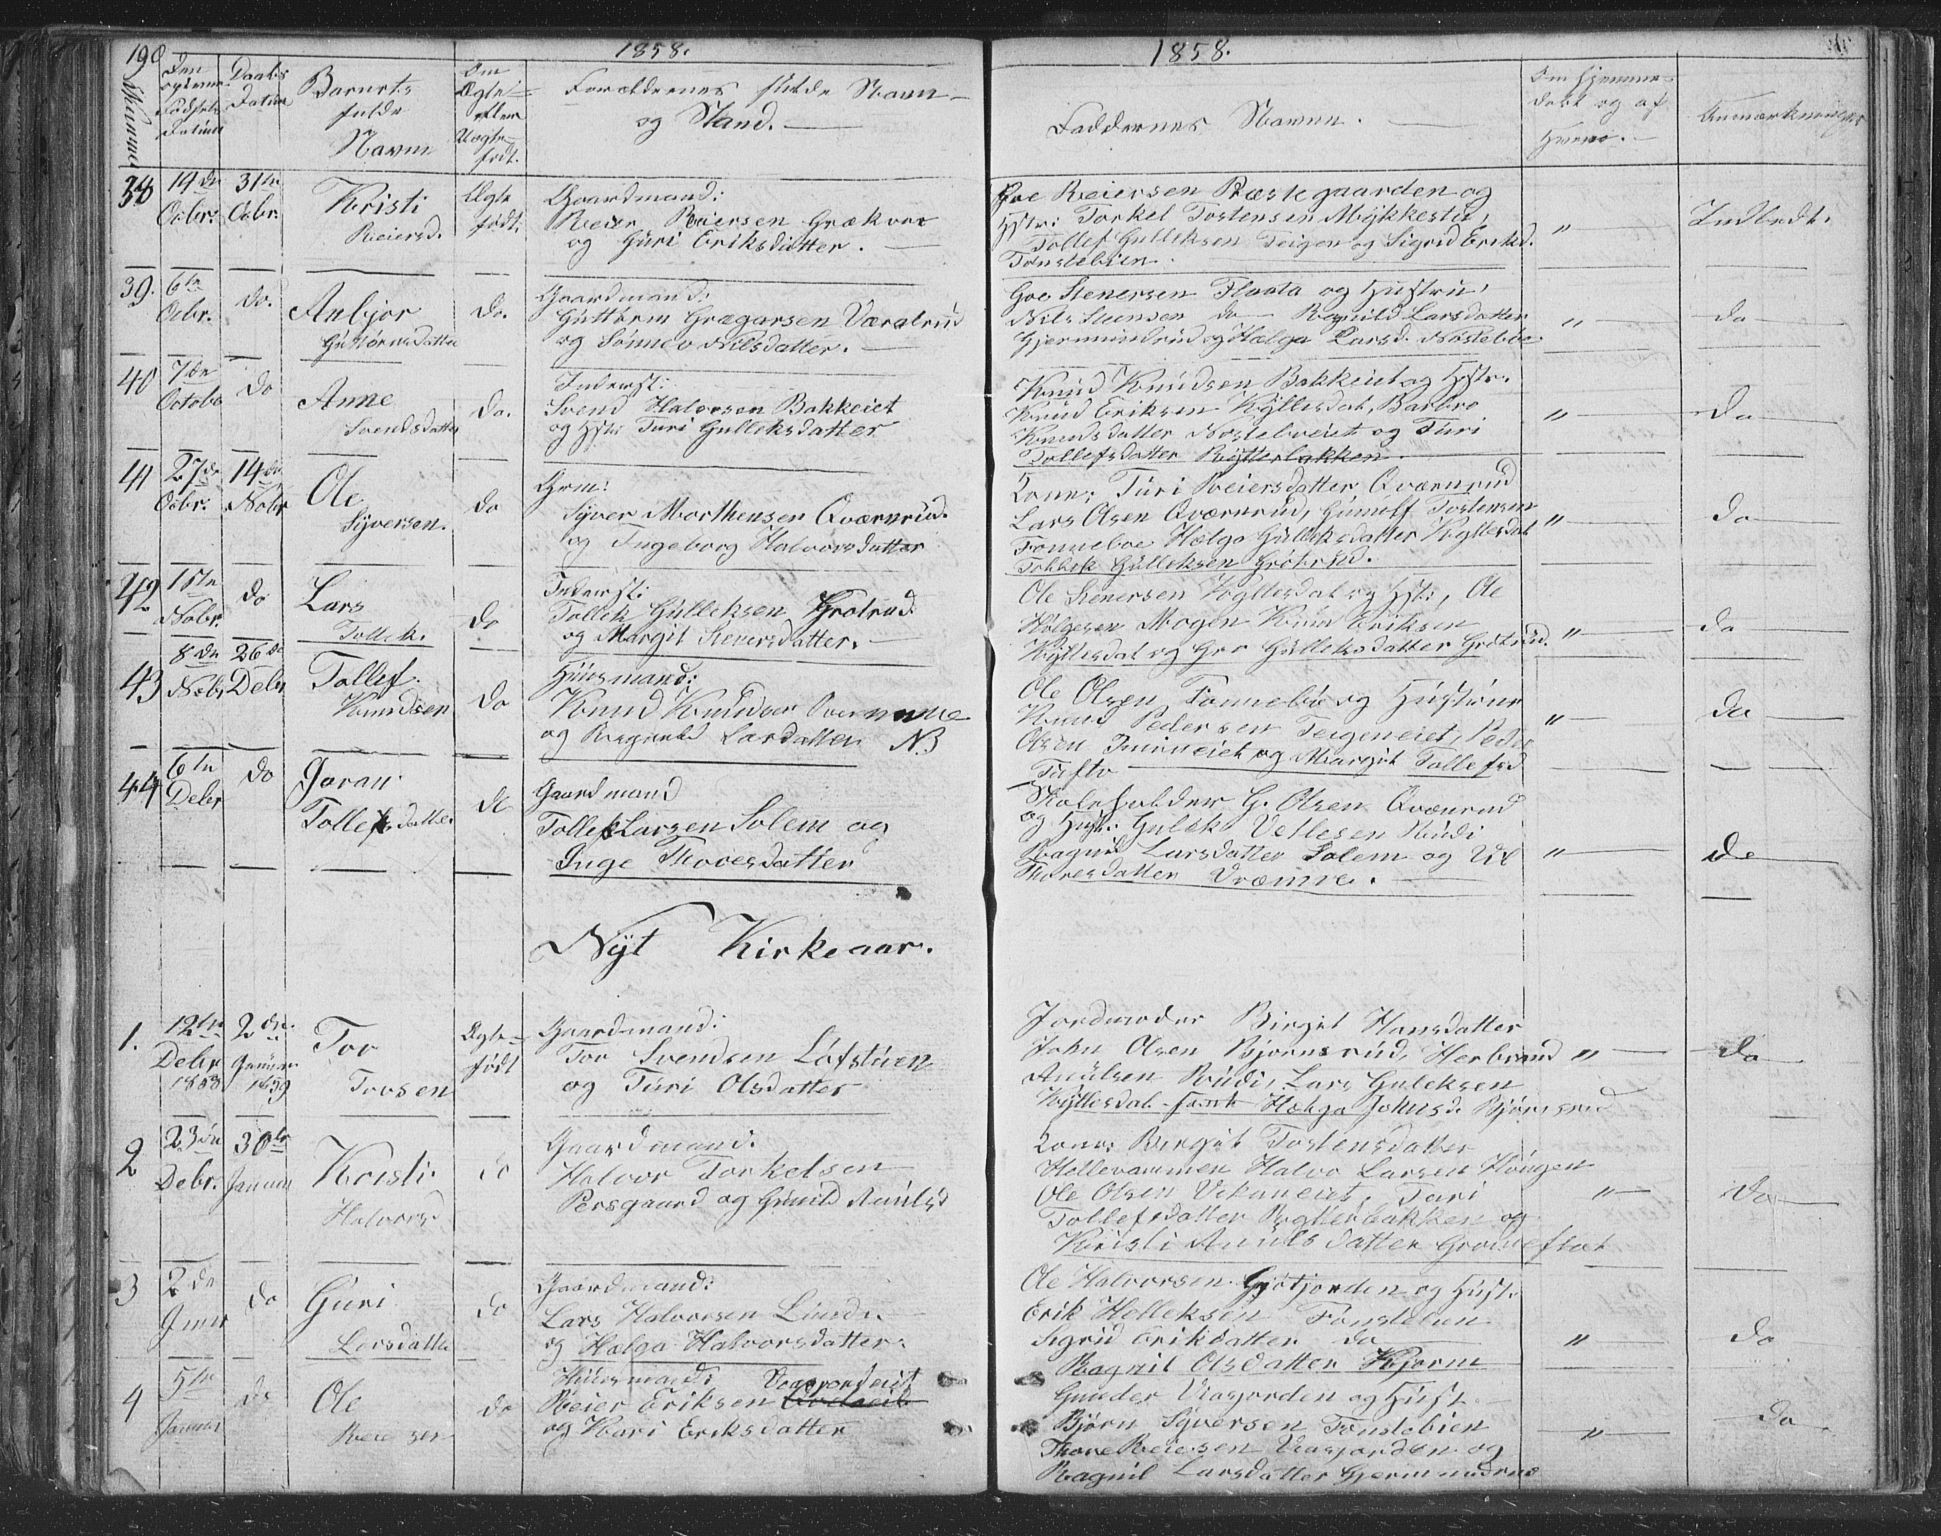 190
1858.
1858.
Nummer
Den
fødsels
datum
Daabs
Datum
Barnets
fulde
Navn
Om
Ægte
eller
Uægte
født.
Forældrenes fulde Navn
og Stand.
Faddernes Navne.
Om hjemme-
døbt og af
hvem.
Anmærkninger
38
19de
Ocbr.
31te
Ocbr.
Kristi
Reiersd.
Ægte
født.
Gaardmand:
Reier Reiersen Grækvar
og Guri Eriksdatter.
Goe Reiersen Præstegaarden og
Hstr: Torkel Tostensen Mykkestu,
Tollef Gulleksen Teigen og Sigrid Eriksd.
Tønslebien.
"
Indledt.
39.
6te
Ocbr.
do.
Anbjør
Guttormsdatter
do.
Gaardmand:
Guttorm Grægarsen Væralrud
og Sønnev Nilsdatter.
Goe Stenersen Flaata og Hustru,
Nils Stensen do Ragnild Larsdatter
Gjermundrud og Helga Larsd. Nøsteboe
"
do
40
7de
Octobr
do
Anne
Svendsdatter
do.
Inderst:
Svend Halvorsen Bakkeiet
og Hstr: Turi Gulleksdatter
Knud Knudsen Bakkeiet og Hstr.
Knud Eriksen Kyllesdal, Barbro
Knudsdatter Nøsteboeiet og Turi
Tollefsdatter Rytterbakken.
"
do
41
27de
Ocbr.
14de
Nobr
Ole
Syversen.
do
Grm:
Syver Morthensen Qværnrud.
og Ingeborg Halvorsdatter
Kone: Turi Reiersdatter Qværnrud
Lars Olsen Qværnrud, Gunulf Tostensen
Fonneboe Helga Gulleksdatter Kyllesdal
Tollek Gulleksen Grøtrud.
"
do
42
15te
Nobr.
do
Lars
Tollek.
do
Inderst:
Tollek Gulleksen Grøtrud
og Margit Stenersdatter.
Ole Stenersen Kyllesdal og Hst:, Ole
Helgesen Mogen Knud Eriksen
Kyllesdal og Gro Gulleksdatter Grøtrud.
"
do
43
8de
Nobr
26de
Debr
Tollef.
Knudsen
do
Huusmand:
Knud Knudsen
og Ragnild Larsdatter NB
Ole Olsen Fønnebø og Hustrue
Knud Pedersen Teigeneiet, Peder
Olsen og Margit Tollefsd
Tufto
"
do
44
6te
Debr
do
Joran
Tollefsdatter
do
Gaardmand
Tollef Larsen Solem og
Inge Thoresdatter
Skoleholder G. Olsen Qværnrud
og Hust: Gulek Vetlesen Rudi
Ragnil Larsdatter Solem og
Thoresdatter Vræmne.
"
do
Nyt Kirkeaar.
1.
12te
Debr
1858
2den
Januar
1859
Tor
Torsen
Ægte
født
Gaardmand:
Tor Svendsen Løfstuen
og Turi Olsdatter
Jordmoder Birgit Hansdatter
John Olsen Bjørnsrud, Herbrand
Amulsen Rudi, Lars Guleksen
Kyllesdal samt Helga Johnsd. Bjørnsrud
"
do
2
23de
Debr.
30te
Januar
Kristi
Halvorsd
do
Gaardmand:
Halvor Torkelsen
Persgaard og Gunild Amulsd
Kone: Birgit Tostensdatter
Hellevammen Halvo Larsen Haugen
Ole Olsen Vekaneiet, Turi
Tollefsdatter Rytterbakken og
Kristi Amulsdatter
"
do
3
2de
Jnur
do
Guri
Larsdatter
do
Gaardmand:
Lars Halvorsen Linde
og Helga Halvorsdatter
Ole Halvorsen Gjøtjorden og Hust.
Erik Helleksen Fønslebien
Sigrid Eriksdatter do
Ragnil Olsdatter Kjørm
"
do
4
5te
Januar
do
Ole
Reiersen
do
Huusmand: Viasjordeiet
Reier Eriksen
og Kari Eriksdatter
Gunder Viasjorden og Hust.
Bjørn Syversen Tønslebien
Thore Reiersen Viasjorden og
Ragnil Larsdatter Gjermundrud
"
do